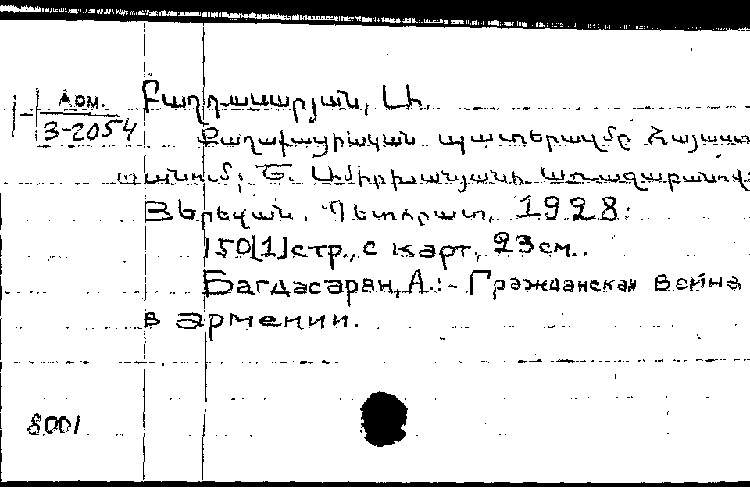 Арм.
3-2054
Բաղդասարյան, Ա.
Քաղաքացիական պատերազմը Հայաս
տանում; Ծ. Ամիրխանյանի առաջաբանով.
Յերեվան, Պետհրատ, 1928:
150[1]стр., с карт., 23см.
Багдасарян, А.:- Гражданская война
в армении.
8001